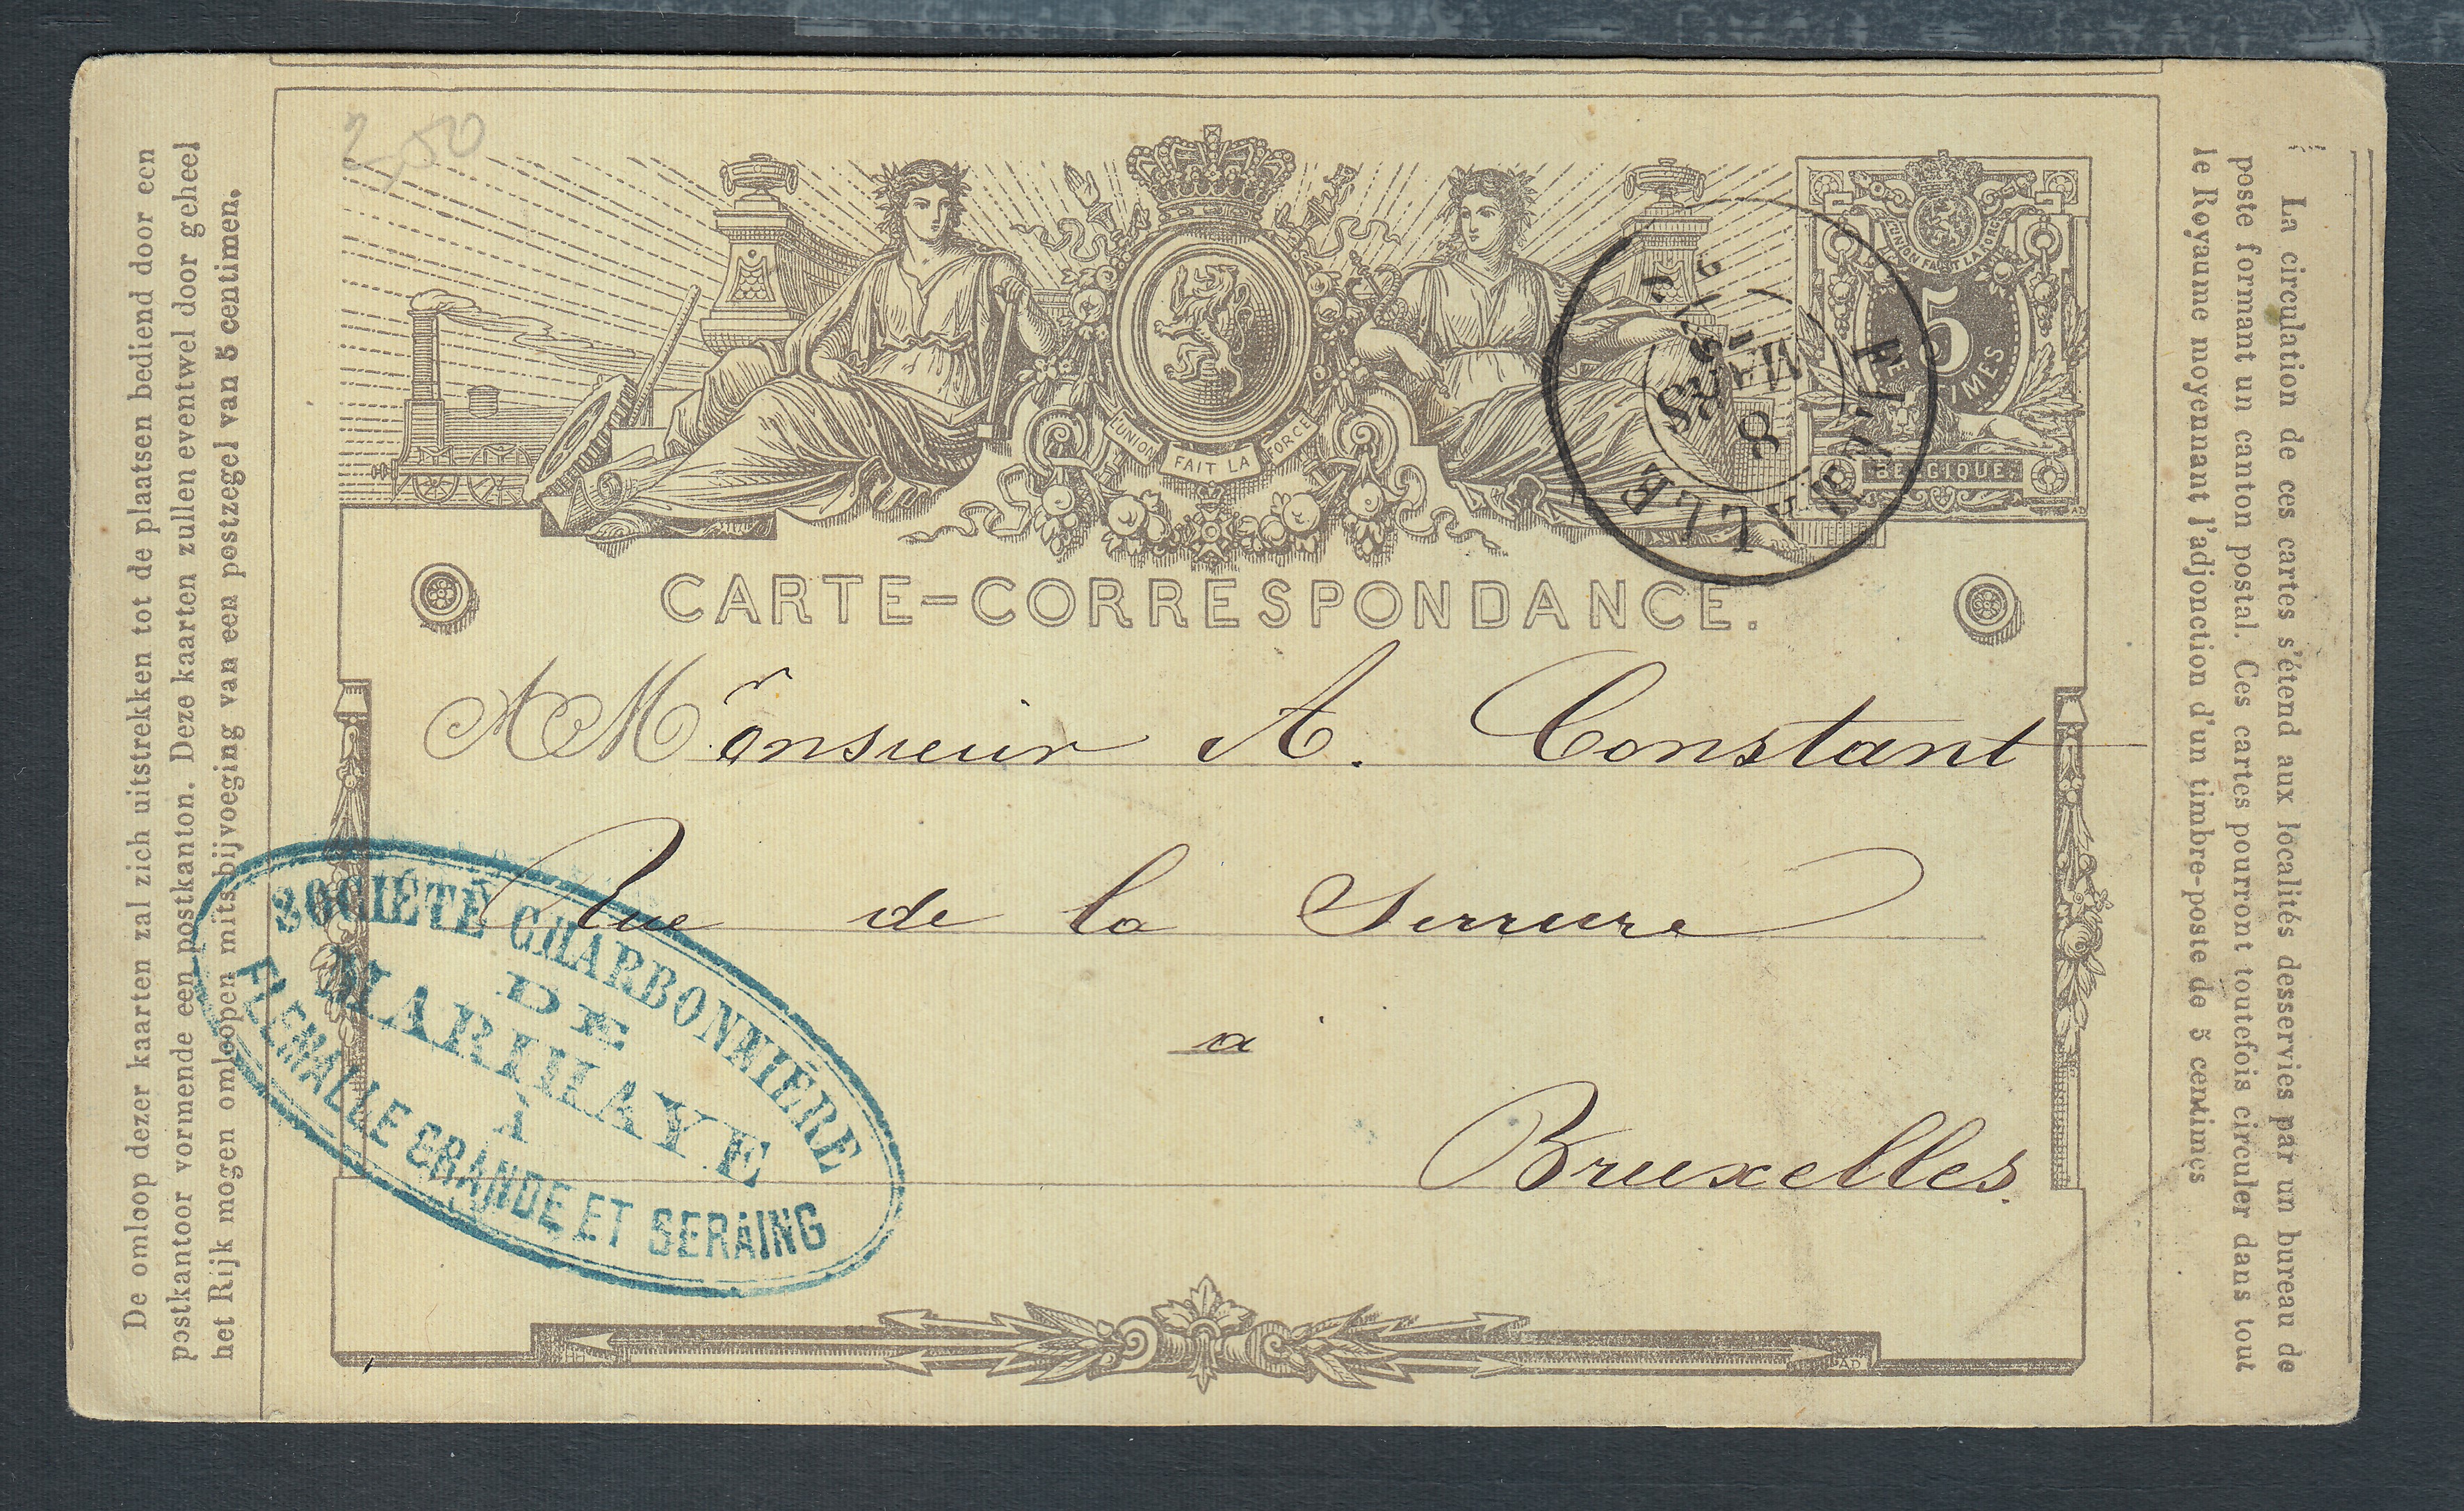 2,50
L'UNION FAIT LA FORCE
L'UNION FAIT LA FORCE
5
BELGIQUE
FLÉMALLE
8
MARS
CARTE-CORRESPONDANCE.
A Monsieur A. Constant
Rue de la Serrure
a
Bruxelles.
SOCIÉTÉ CHARBONNIÈRE
DE
MARIHAYE
À
FLÉMALLE GRANDE ET SERAING
HH
AD
De omloop dezer kaarten zal zich uitstrekken tot de plaatsen bediend door een
postkantoor vormende een postkanton. Deze kaarten zullen eventwel door geheel
het Rijk mogen omloopen mits bijvoeging van een postzegel van 5 centimen.
La circulation de ces cartes s'étend aux localités desservies par un bureau de
poste formant un canton postal. Ces cartes pourront toutefois circuler dans tout
le Royaume moyennant l'adjonction d'un timbre-poste de 5 centimes